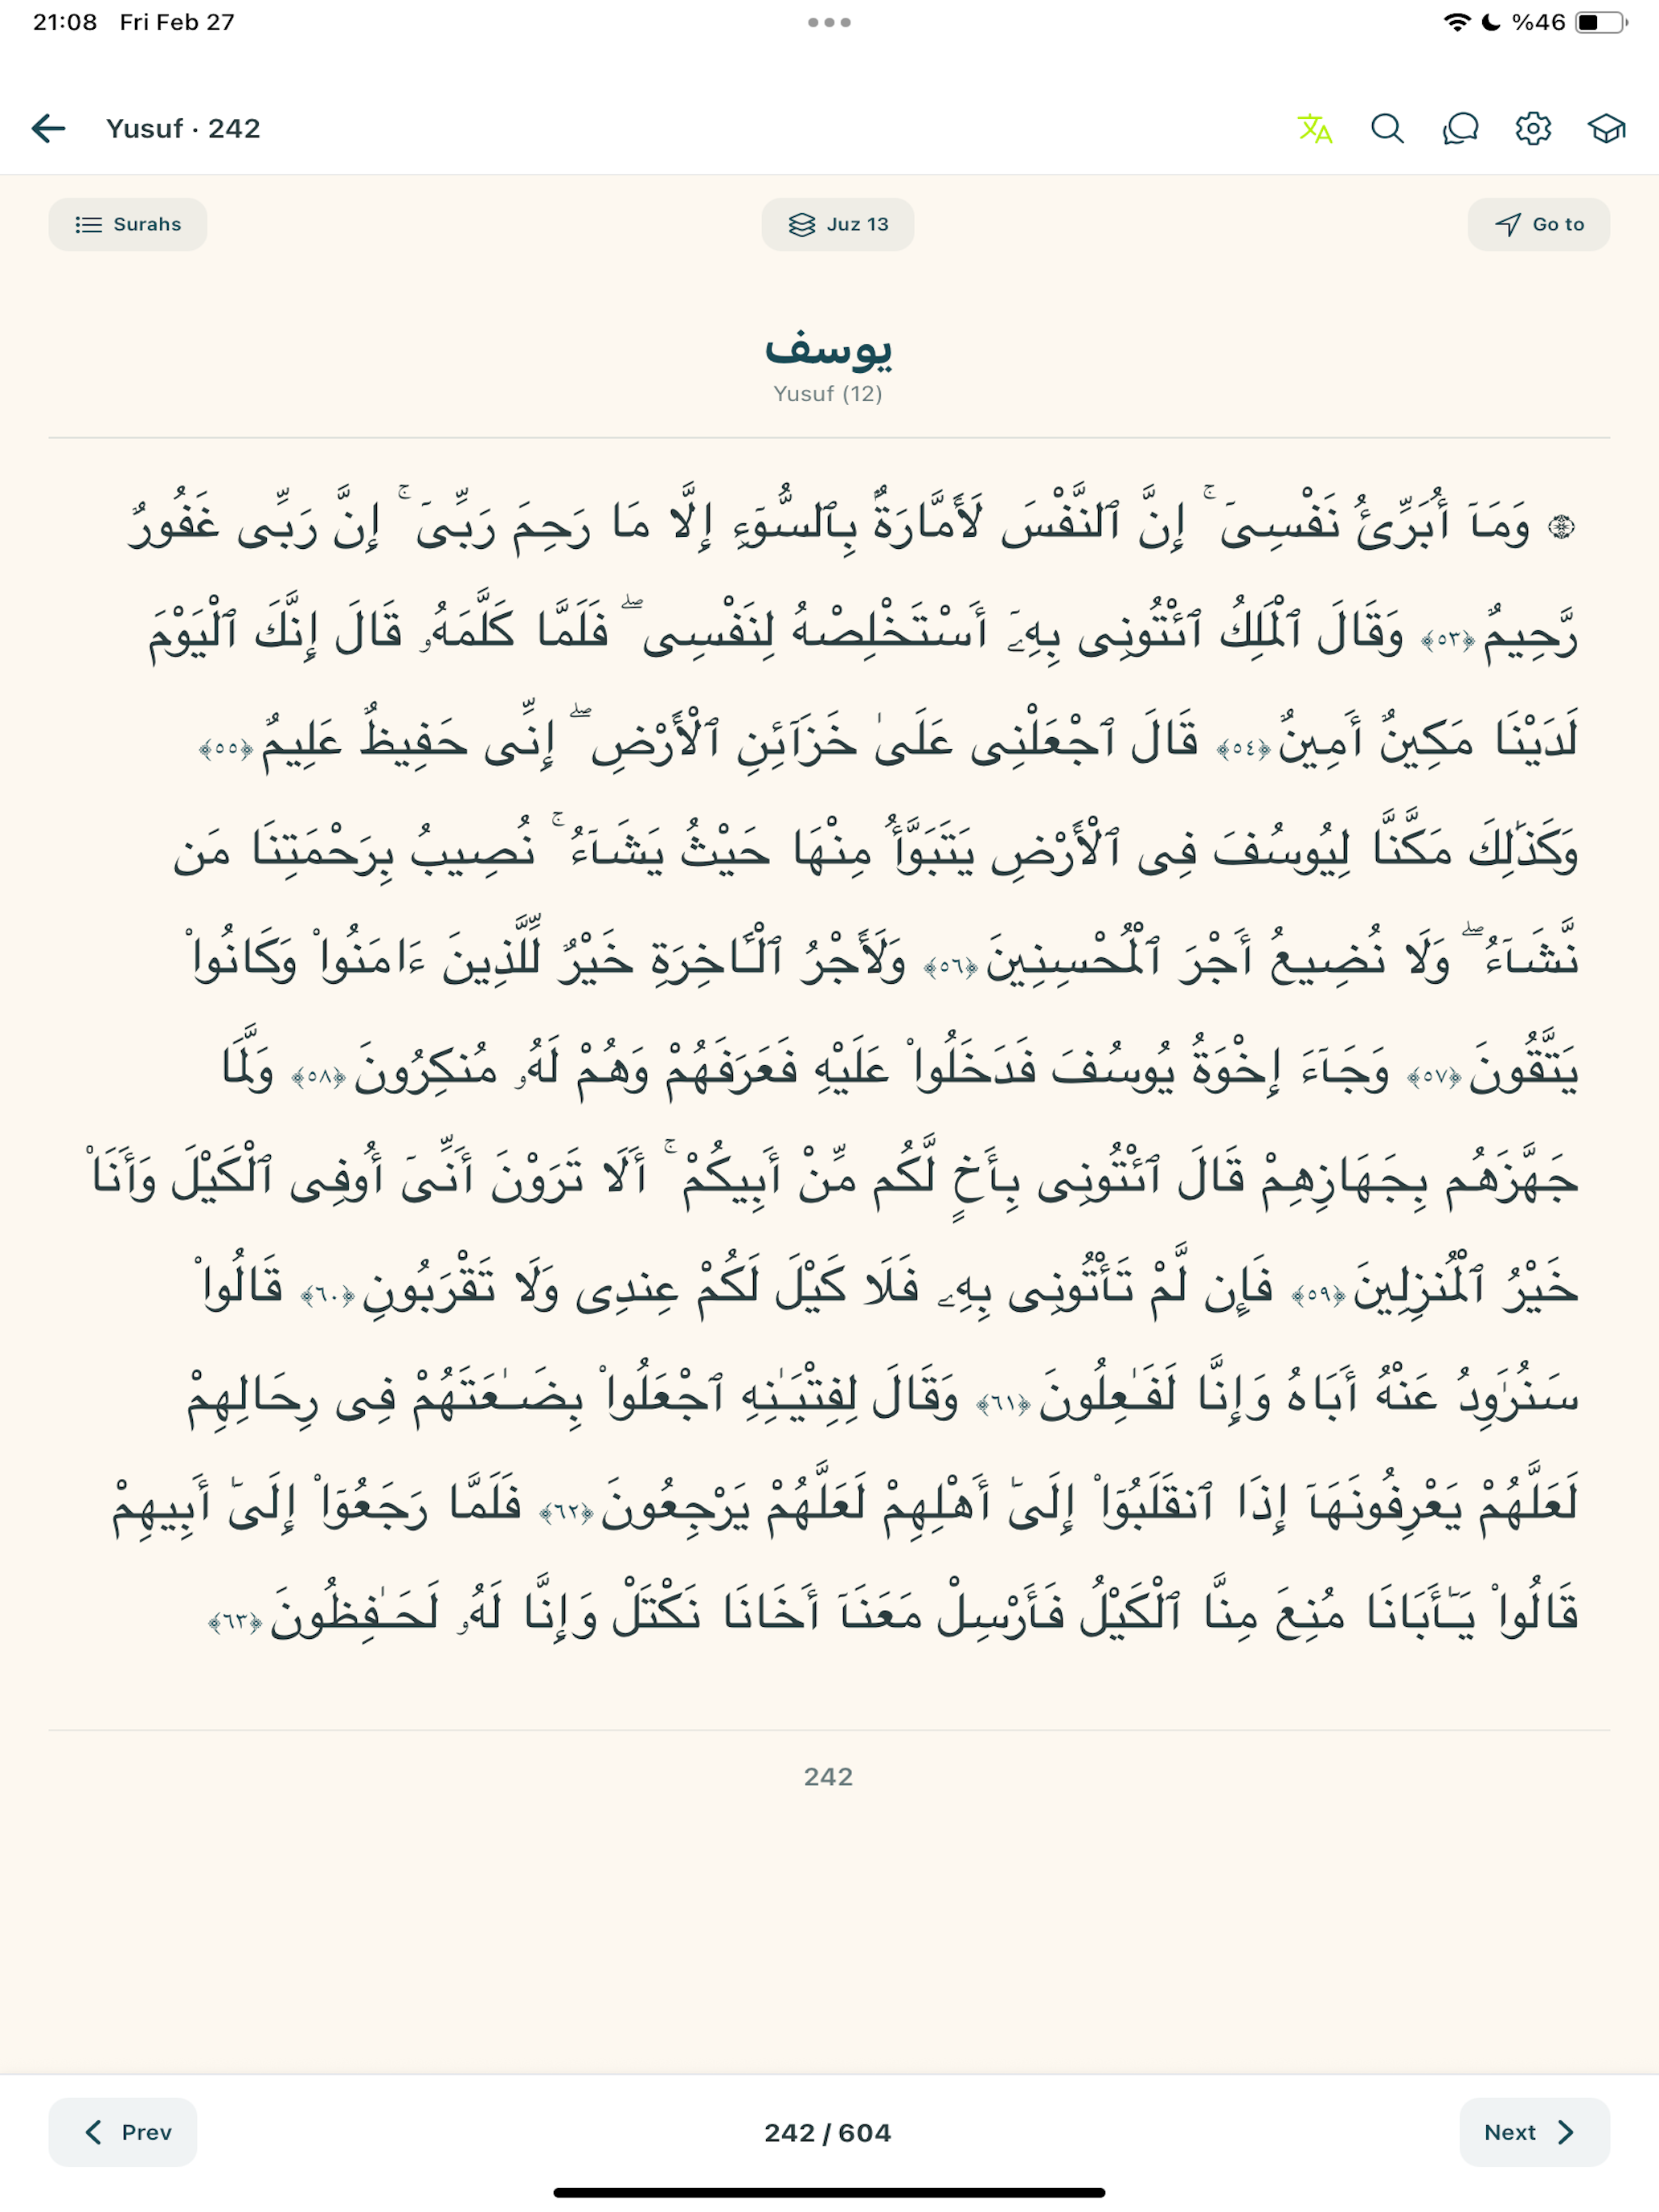 21:08 Fri Feb 27 %46
Yusuf · 242
Surahs Juz 13 Go to
يوسف
Yusuf (12)
۞ وَمَآ أُبَرِّئُ نَفْسِىٓ ۚ إِنَّ ٱلنَّفْسَ لَأَمَّارَةٌۢ بِٱلسُّوٓءِ إِلَّا مَا رَحِمَ رَبِّىٓ ۚ إِنَّ رَبِّى غَفُورٌ
رَّحِيمٌ ﴿٥٣﴾ وَقَالَ ٱلْمَلِكُ ٱئْتُونِى بِهِۦٓ أَسْتَخْلِصْهُ لِنَفْسِى ۖ فَلَمَّا كَلَّمَهُۥ قَالَ إِنَّكَ ٱلْيَوْمَ
لَدَيْنَا مَكِينٌ أَمِينٌ ﴿٥٤﴾ قَالَ ٱجْعَلْنِى عَلَىٰ خَزَآئِنِ ٱلْأَرْضِ ۖ إِنِّى حَفِيظٌ عَلِيمٌ ﴿٥٥﴾
وَكَذَٰلِكَ مَكَّنَّا لِيُوسُفَ فِى ٱلْأَرْضِ يَتَبَوَّأُ مِنْهَا حَيْثُ يَشَآءُ ۚ نُصِيبُ بِرَحْمَتِنَا مَن
نَّشَآءُ ۖ وَلَا نُضِيعُ أَجْرَ ٱلْمُحْسِنِينَ ﴿٥٦﴾ وَلَأَجْرُ ٱلْـَٔاخِرَةِ خَيْرٌ لِّلَّذِينَ ءَامَنُوا۟ وَكَانُوا۟
يَتَّقُونَ ﴿٥٧﴾ وَجَآءَ إِخْوَةُ يُوسُفَ فَدَخَلُوا۟ عَلَيْهِ فَعَرَفَهُمْ وَهُمْ لَهُۥ مُنكِرُونَ ﴿٥٨﴾ وَلَمَّا
جَهَّزَهُم بِجَهَازِهِمْ قَالَ ٱئْتُونِى بِأَخٍ لَّكُم مِّنْ أَبِيكُمْ ۚ أَلَا تَرَوْنَ أَنِّىٓ أُوفِى ٱلْكَيْلَ وَأَنَا۠
خَيْرُ ٱلْمُنزِلِينَ ﴿٥٩﴾ فَإِن لَّمْ تَأْتُونِى بِهِۦ فَلَا كَيْلَ لَكُمْ عِندِى وَلَا تَقْرَبُونِ ﴿٦٠﴾ قَالُوا۟
سَنُرَٰوِدُ عَنْهُ أَبَاهُ وَإِنَّا لَفَـٰعِلُونَ ﴿٦١﴾ وَقَالَ لِفِتْيَـٰنِهِ ٱجْعَلُوا۟ بِضَـٰعَتَهُمْ فِى رِحَالِهِمْ
لَعَلَّهُمْ يَعْرِفُونَهَآ إِذَا ٱنقَلَبُوٓا۟ إِلَىٰٓ أَهْلِهِمْ لَعَلَّهُمْ يَرْجِعُونَ ﴿٦٢﴾ فَلَمَّا رَجَعُوٓا۟ إِلَىٰٓ أَبِيهِمْ
قَالُوا۟ يَـٰٓأَبَانَا مُنِعَ مِنَّا ٱلْكَيْلُ فَأَرْسِلْ مَعَنَآ أَخَانَا نَكْتَلْ وَإِنَّا لَهُۥ لَحَـٰفِظُونَ ﴿٦٣﴾
242
Prev 242 / 604 Next